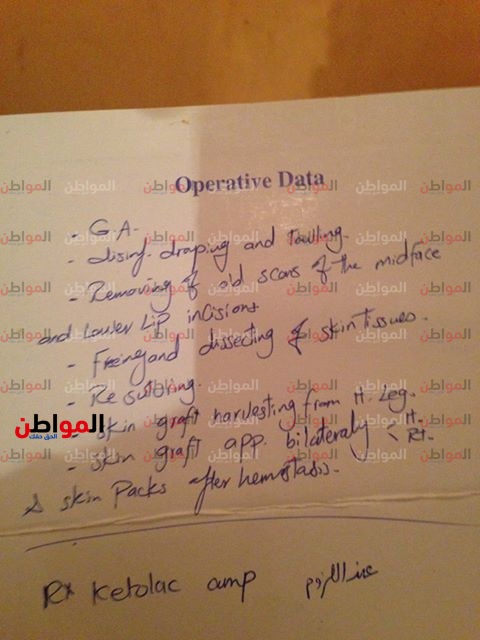 Operative Data
- G.A.
- disinf. draping and towling.
- Removing of old scars of the midface
and Lower Lip incisions
- Freing and dissecting of skin tissues.
- Resuturing.
- skin graft harvesting from Lt. Leg.
- skin graft app. bilateraly Lt. Rt.
& skin Packs after hemostasis.
Rx Ketolac amp عند اللزوم
المواطن